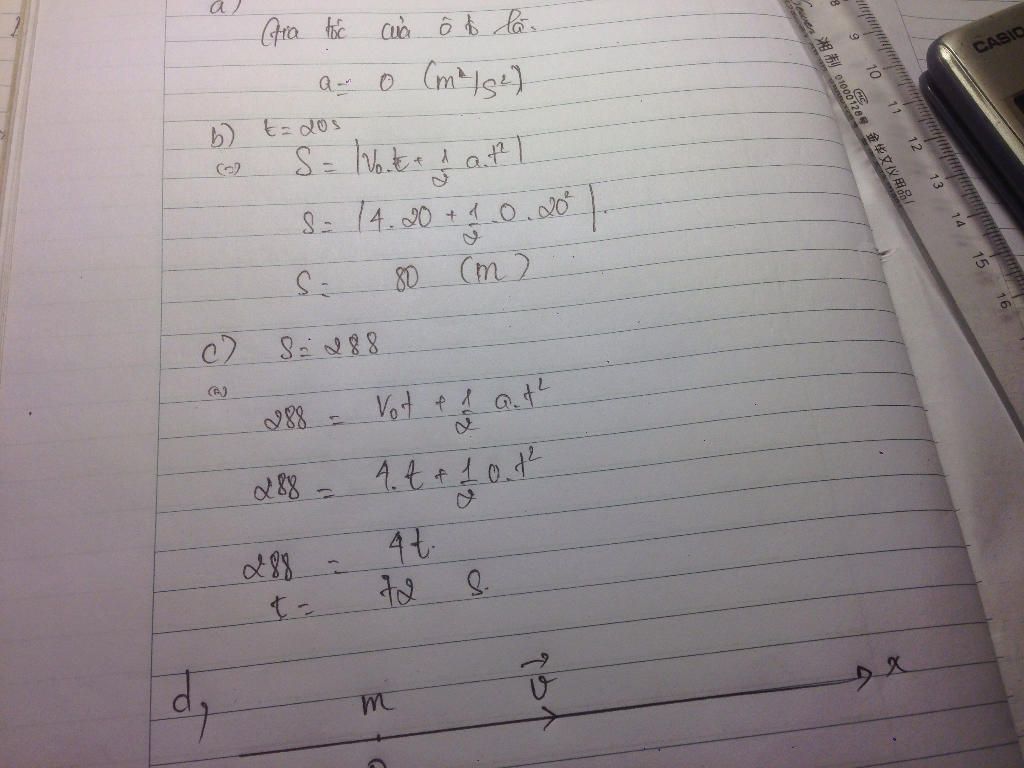 a)
Gia tốc của ô tô là:
a = 0 (m²/s²)
b) t = 20s
(=) S = |V₀.t + 1/2 a.t²|
S = |4.20 + 1/2.0.20²|.
S = 80 (m)
c) S = 288
288 = V₀t + 1/2 a.t²
288 = 4.t + 1/2 0.t²
288 = 4t.
t = 72 s.
d, m v⃗ x
CASIO
8 9 10 11 12 13 14 15 16